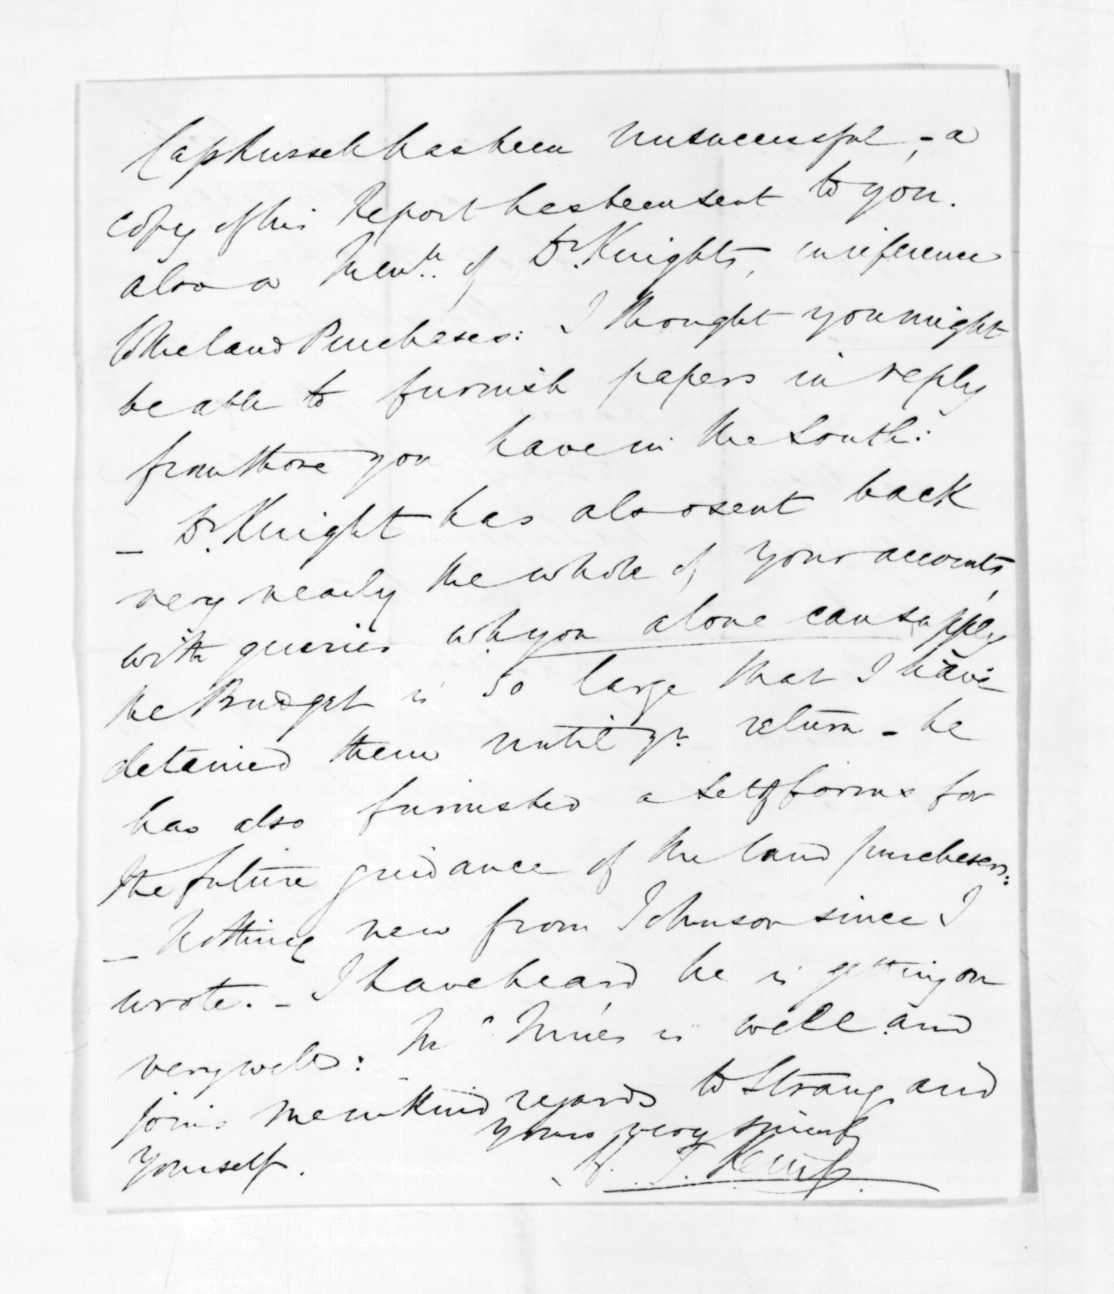 Cap Russell has been unsuccessful, - a
copy of his Report has been sent to you.
also a Mem^m. of Dr. Knights, in reference
to the land Purchases: I thought you might
be able to furnish papers in reply
from those you have in the South:
_ Dr. Knight has also sent back
very nearly the whole of your accounts,
with queries wh. you alone can supply
the Budget is so large that I have
detained them until yr. return - he
has also furnished a set of forms for
the future guidance of the land purchasers:
_ Nothing new from Johnson since I
wrote. - I have heard he is getting on
very well: Mc is well and
joins me in kind regards to Strang and
yourself.
yours very
T. Kemp